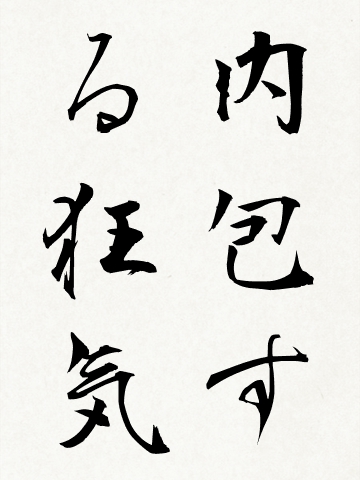 内包す
る狂気